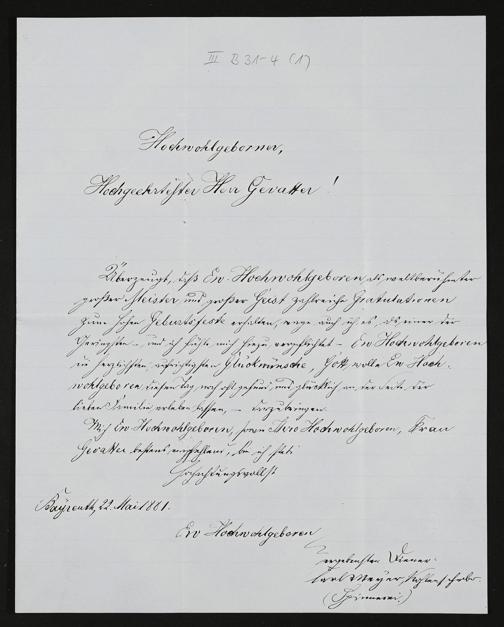 III B 31-4 (1)
Hochwohlgeborner,
Hochgeehrtester Herr Gevatter!
Überzeugt, daß Ew. Hochwohlgeboren, als weltberühmter
großer Meister und großer Geist zahlreiche Gratulationen
zum hohen Geburtsfeste erhalten, wage auch ich es, als einer der
Geringsten – und ich fühle mich hiezu verpflichtet – Ew Hochwohlgeboren
die herzlichsten, aufrichtigsten Glückwünsche, Gott wolle Ew Hoch-
wohlgeboren diesen Tag noch oft gesund und glücklich an der Seite der
lieben Familie erleben lassen, – darzubringen.
Mich Ew Hochwohlgeboren, sowie Ihro Hochwohlgeboren, Frau
Gevatter bestens empfehlend, bin ich stets
Hochachtungsvollst
Bayreuth, 22. Mai 1881.
Ew Hochwohlgeboren
ergebenster Diener
Carl Meyer
(Spinnerei.)